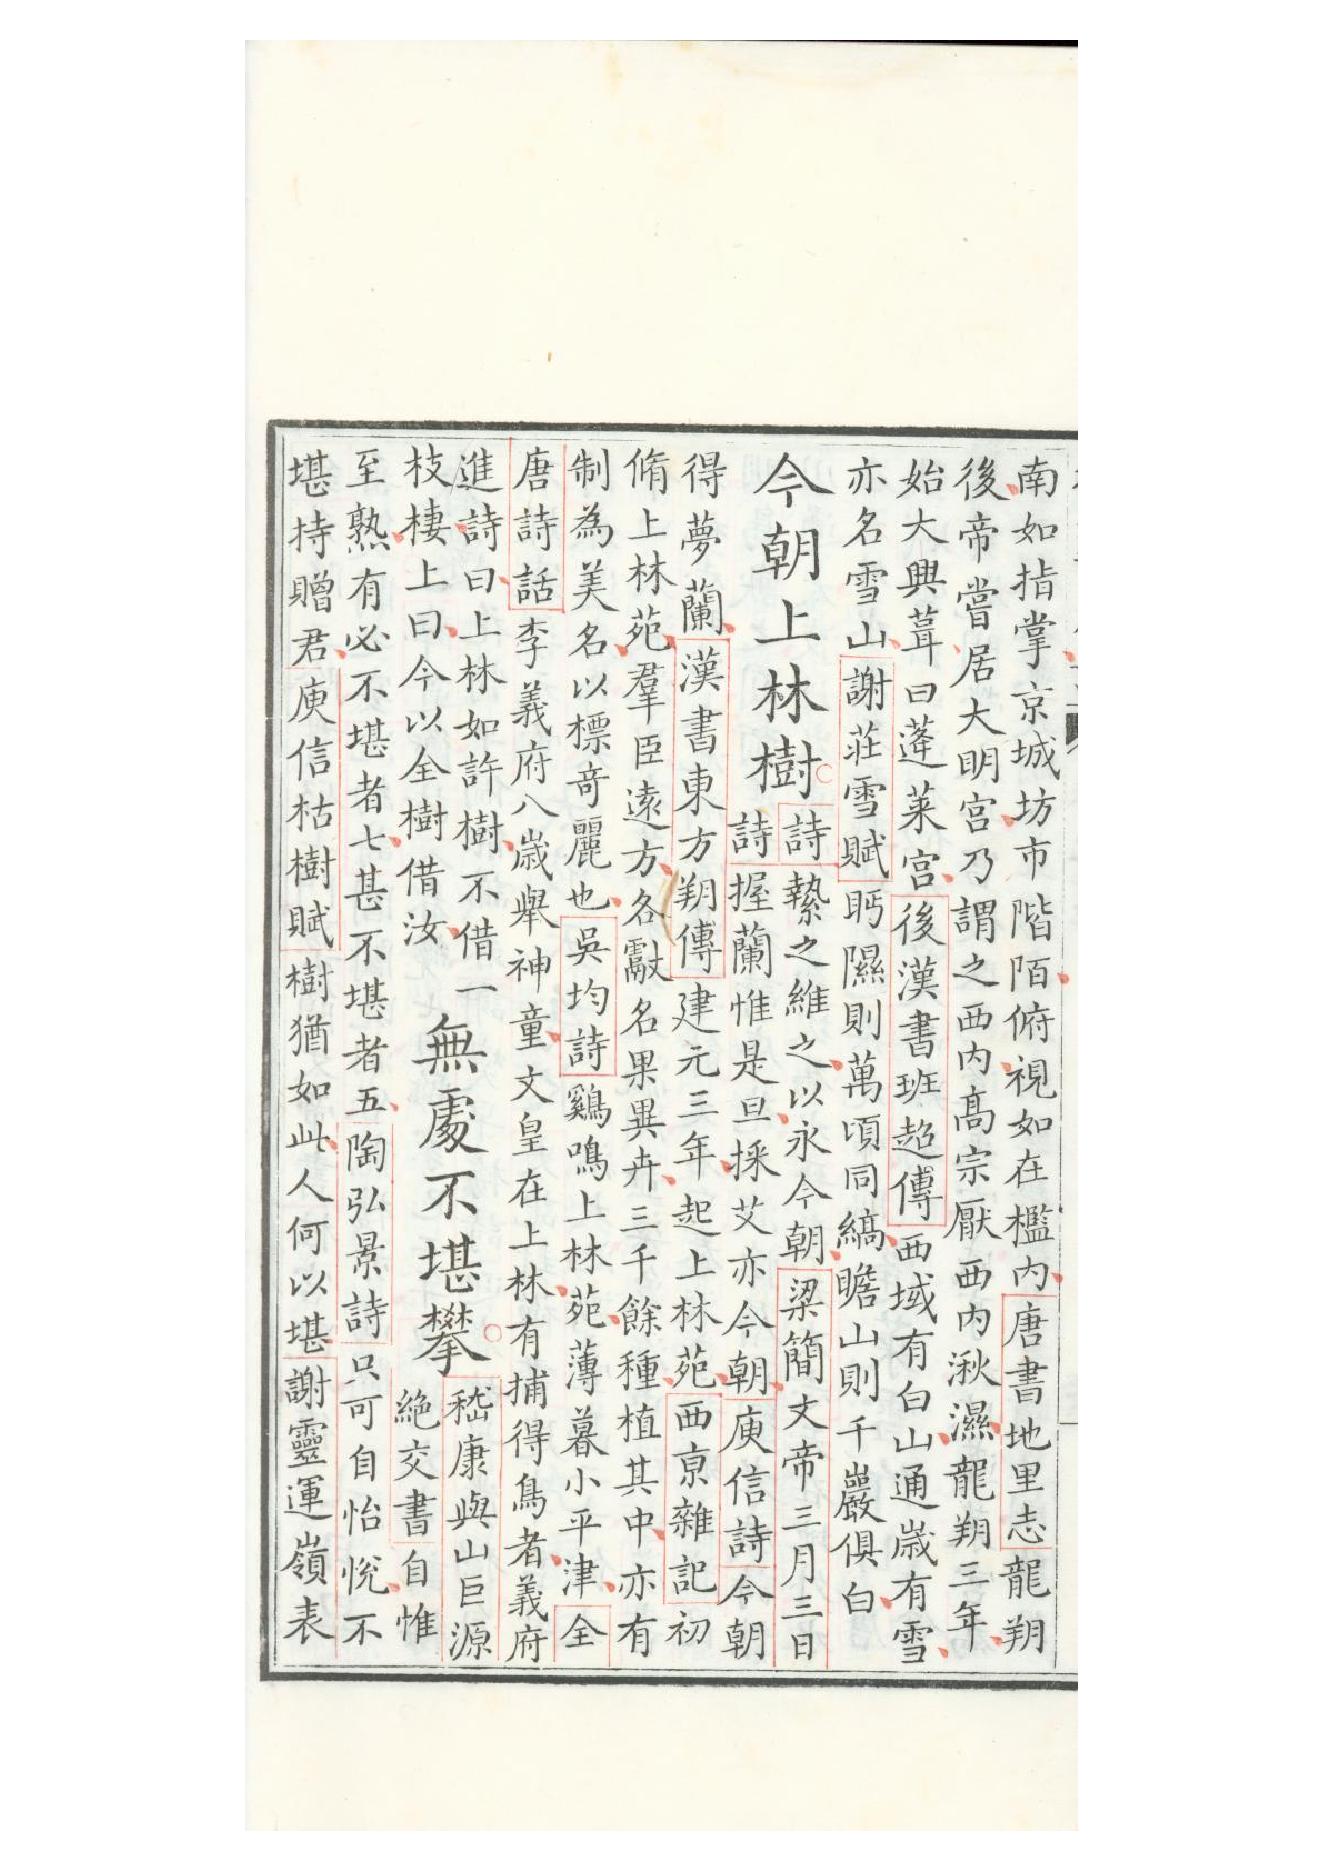 南如指掌京城坊市階陌俯視如在檻内唐書地里志龍朔
後帝嘗居大明宮乃謂之西内髙宗厭西内湫濕龍朔三年
始大興葺曰蓬萊宮後漢書班超傳西域有白山通嵗有雪
亦名雪山謝莊雪賦眄隰則萬頃同縞瞻山則千巖俱白
今朝上林樹
詩縶之維之以永今朝梁簡文帝三月三日
詩握蘭惟是旦採艾亦今朝庾信詩今朝
得夢蘭漢書東方朔傳建元三年起上林苑西亰雜記初
脩上林苑羣臣遠方各獻名果異卉三千餘種植其中亦有
制為美名以標竒麗也吳均詩鷄鳴上林苑薄暮小平津全
唐詩話李義府八嵗舉神童文皇在上林有捕得鳥者義府
進詩曰上林如許樹不借一
枝棲上曰今以全樹借汝
無處不堪攀
嵇康與山巨源
絶交書自惟
至熟有必不堪者七甚不堪者五陶弘景詩只可自怡悅不
堪持贈君庾信枯樹賦樹猶如此人何以堪謝靈運嶺表